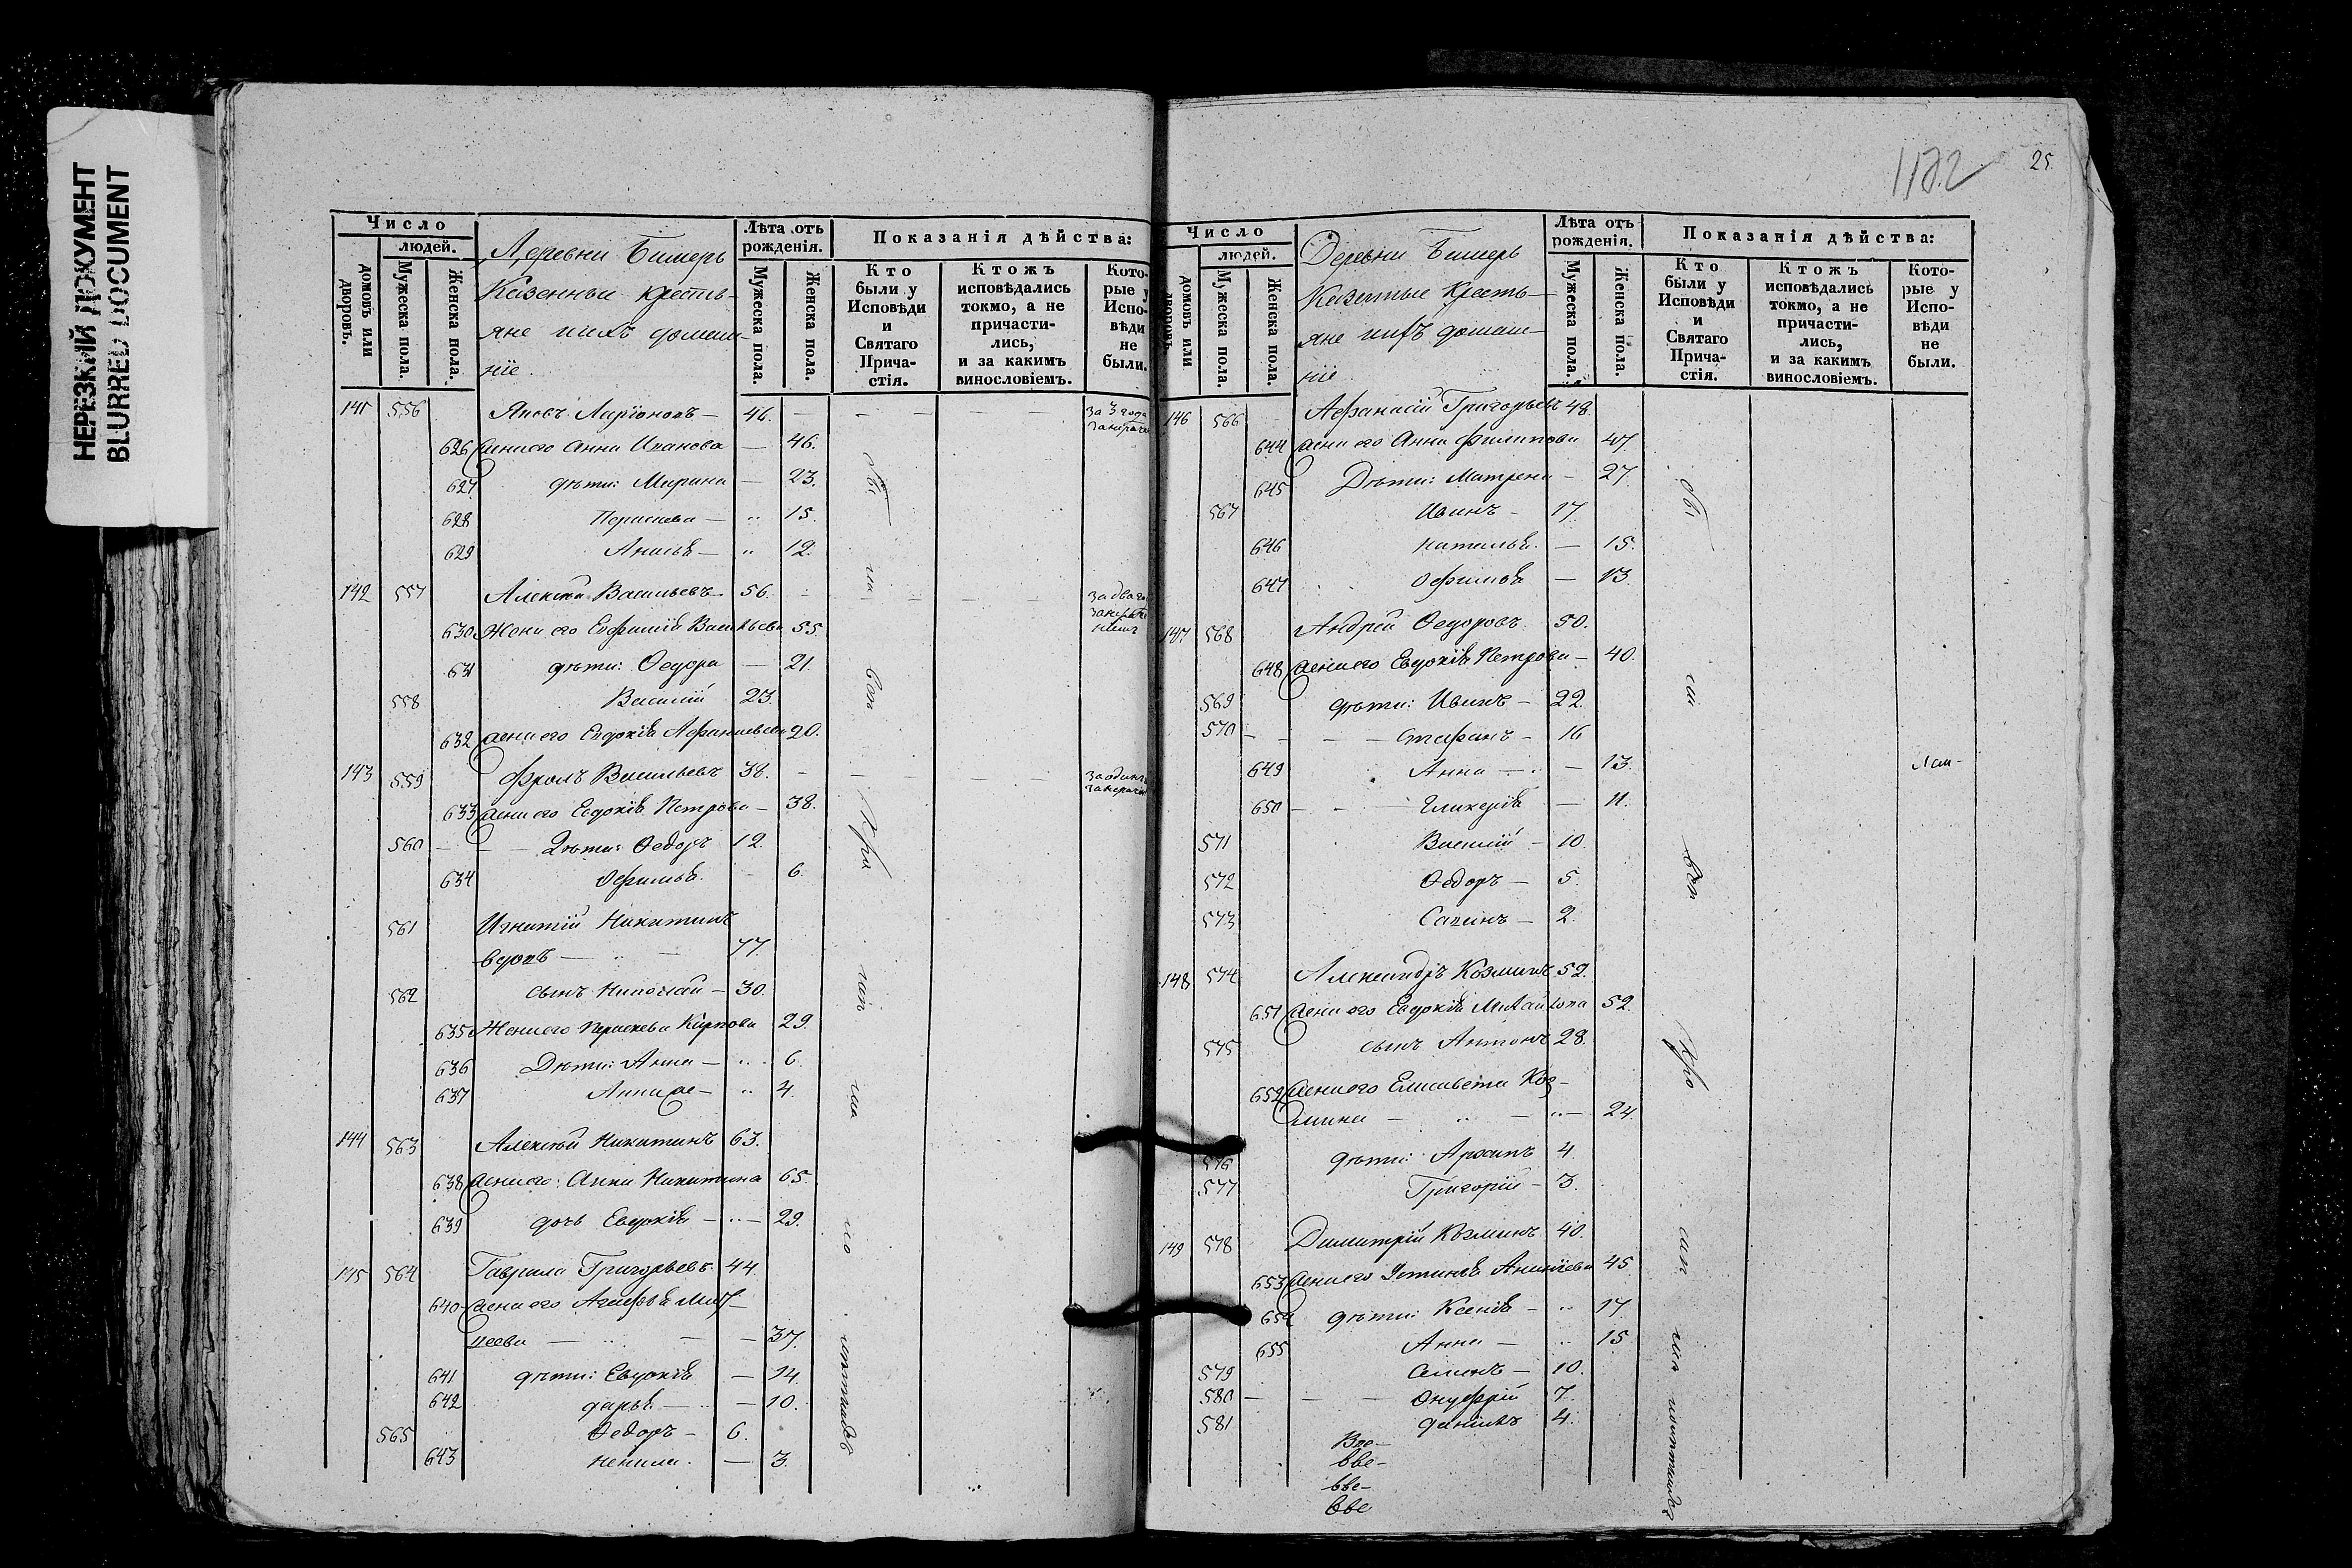 НЕРЕЗКИЙ ДОКУМЕНТ
BLURRED DOCUMENT
Число
людей.
домовъ или дворовъ.
Мужеска пола.
Женска пола.
Деревни Бимерь
Казенные кресть-
яне ихъ домаш-
ніе
Лѣта отъ рожденія.
Мужеска пола.
Женска пола.
Показанія дѣйства:
Кто были у Исповѣди и Святаго Прича-стія.
Ктожъ исповѣдались токмо, а не причасти-лись, и за какимъ винословіемъ.
Кото-рые у Испо-вѣди не были.
141 556 Яковъ Ларіоновъ — 46. за 3 года
626 жена его Анна Иванова — 46.
627 дѣти: Марина — 23.
628 Параскева — 15.
629 Анисья — 12.
142 557 Алексѣй Васильевъ 56.
630 Жена его Евфимія Васильева 55.
631 дѣти: Ѳедора — 21.
558 Василій 23.
632 жена его Евдокія Афанасьева 20.
143 559 Фролъ Васильевъ 38.
633 жена его Евдокія Петрова — 38.
560 Дѣти: Ѳедоръ 12
634 Офимья — 6.
561 Игнатій Никитинъ
вдовъ — 77.
562 сынъ Николай — 30.
635 Жена его Параскева Карпова 29.
636 Дѣти: Анна — 6.
637 Анна же — 4.
144 563 Алексѣй Никитинъ 63.
638 жена его Анна Никитина 65.
639 дочь Евдокія — 29.
145 564 Гаврила Григорьевъ 44
640 жена его Агафья Мат-
веева — 37.
641 дѣти: Евдокія — 14.
642 дарья — 10.
565 Ѳедоръ — 6.
643 Ненила — 3.
1172
25
Число
людей.
домовъ или дворовъ.
Мужеска пола.
Женска пола.
Деревни Бимерь
Казенные кресть-
яне ихъ домаш-
ніе
Лѣта отъ рожденія.
Мужеска пола.
Женска пола.
Показанія дѣйства:
Кто были у Исповѣди и Святаго Прича-стія.
Ктожъ исповѣдались токмо, а не причасти-лись, и за какимъ винословіемъ.
Кото-рые у Испо-вѣди не были.
146 566 Афанасій Григорьевъ 48.
644 жена его Анна Филипова 47.
645 Дѣти: Матрена — 27.
567 Иванъ — 17
646 Наталья — 15.
647 Офимья — 13.
147 568 Андрей Ѳедоровъ 50.
648 жена его Евдокія Петрова — 40.
569 дѣти: Иванъ — 22.
570 Стефанъ — 16
649 Анна — 13.
650 Гликерія — 11.
571 Василій — 10.
572 Ѳедоръ — 5.
573 Савинъ — 2.
148 574 Александръ Козминъ 52.
651 жена его Евдокія Михайлова 52.
575 сынъ Антонъ 28.
652 жена его Елисавета Коз-
мина — 24.
576 дѣти: Архипъ 4.
577 Григорій — 3.
149 578 Димитрій Козминъ 40.
653 жена его Устинья Ананіева 45.
654 дѣти: Ксенія — 17.
655 Анна — 15
579 Семенъ — 10.
580 Онуфрій 7.
581 Даніилъ 4.
Вве-
вве-
вве-
вве